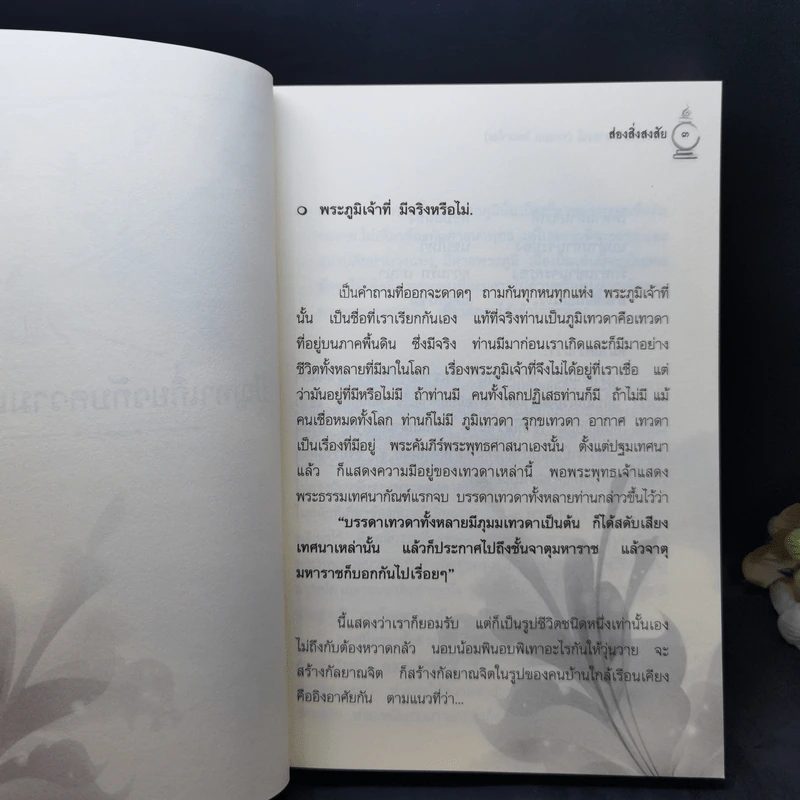 ส่องสิ่งสงสัย ๓
พระภูมิเจ้าที่ มีจริงหรือไม่.
เป็นคำถามที่ออกจะดาดๆ ถามกันทุกหนทุกแห่ง พระภูมิเจ้าที่
นั้น เป็นชื่อที่เราเรียกกันเอง แท้ที่จริงท่านเป็นภูมิเทวดาคือเทวดา
ที่อยู่บนภาคพื้นดิน ซึ่งมีจริง ท่านมีมาก่อนเราเกิดและก็มีมาอย่าง
ชีวิตทั้งหลายที่มีมาในโลก เรื่องพระภูมิเจ้าที่จึงไม่ได้อยู่ที่เราเชื่อ แต่
ว่ามันอยู่ที่มีหรือไม่มี ถ้าท่านมี คนทั้งโลกปฏิเสธท่านก็มี ถ้าไม่มี แม้
คนเชื่อหมดทั้งโลก ท่านก็ไม่มี ภูมิเทวดา รุกขเทวดา อากาศ เทวดา
เป็นเรื่องที่มีอยู่ พระคัมภีร์พระพุทธศาสนาเองนั้น ตั้งแต่ปฐมเทศนา
แล้ว ก็แสดงความมีอยู่ของเทวดาเหล่านี้ พอพระพุทธเจ้าแสดง
พระธรรมเทศนากัณฑ์แรกจบ บรรดาเทวดาทั้งหลายท่านกล่าวขึ้นไว้ว่า
“บรรดาเทวดาทั้งหลายมีภุมมเทวดาเป็นต้น ก็ได้สดับเสียง
เทศนาเหล่านั้น แล้วก็ประกาศไปถึงชั้นจาตุมหาราช แล้วจาตุ
มหาราชก็บอกกันไปเรื่อยๆ”
นี้แสดงว่าเราก็ยอมรับ แต่ก็เป็นรูปชีวิตชนิดหนึ่งเท่านั้นเอง
ไม่ถึงกับต้องหวาดกลัว นอบน้อมพินอบพิเทาอะไรกันให้วุ่นวาย จะ
สร้างกัลยาณจิต ก็สร้างกัลยาณจิตในรูปของคนบ้านใกล้เรือนเคียง
คืออิงอาศัยกัน ตามแนวที่ว่า...